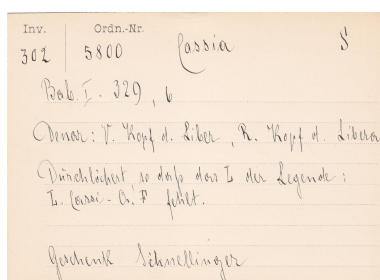 Inv. Ordn.-Nr.
302 5800 Cassia S
Bab. I. 329, 6
Denar: V. Kopf d. Liber, R. Kopf d. Libera
Durchlöchert, so daß das L der Legende:
L. Cassi - Q. F fehlt.
Geschenk Schnellinger